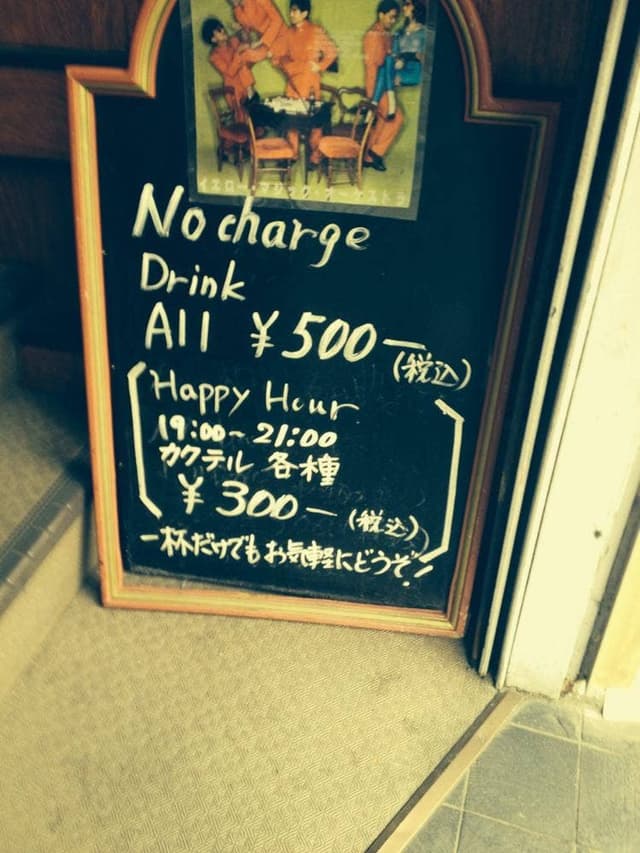 イエロー・マジック・オーケストラ
No charge
Drink
All ¥500—
(税込)
Happy Hour
19:00~21:00
カクテル 各種
¥300— (税込)
一杯だけでもお気軽にどうぞ!